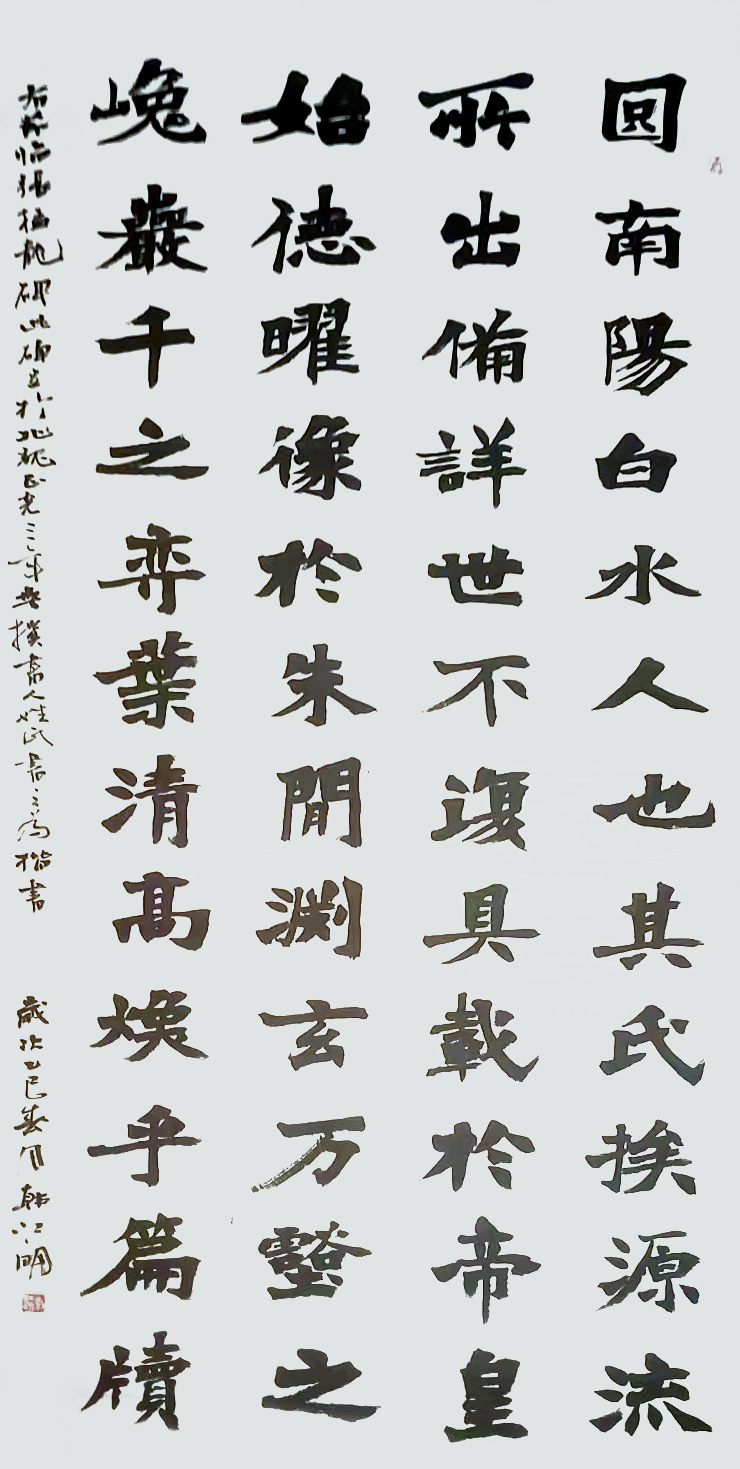 囯南陽白水人也其氏挨源流
所出備詳世不復具載於帝皇
始德曜像於朱閒渊玄万壑之
巉巖千之弈葉清高焕乎篇牘
右節临張猛龍碑此碑立於北魏正光三年無撰書人姓氏書之為楷書
歲次乙巳春月韩江明